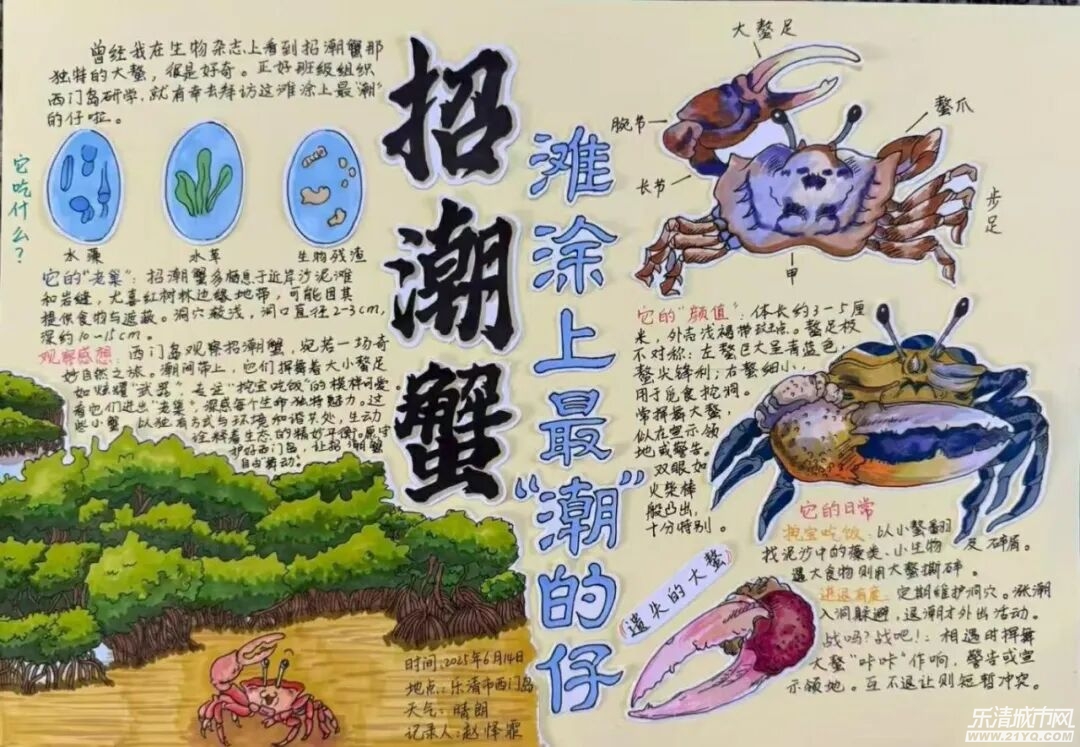 曾经我在生物杂志上看到招潮蟹那
独特的大螯，很是好奇。正好班级组织
西门岛研学，就有幸去拜访这滩涂上最"潮"
的仔啦。
它吃什么？
水藻
水草
生物残渣
它的"老巢"：招潮蟹多栖息于近岸沙泥滩
和岩缝，尤喜红树林边缘地带，可能因其
提供食物与遮蔽。洞穴较浅，洞口直径2-3cm，
深约10-15cm。
观察感想：西门岛观察招潮蟹，宛若一场奇
妙自然之旅。潮间带上，它们挥舞着大小螯足
如炫耀"武器"，专注"挖宝吃饭"的模样可爱。
看他们进出"老巢"，深感每个生命独特魅力。这
些小蟹，以独有方式与环境和谐共处，生动
诠释着生态的精妙平衡。愿守
护好西门岛，让招潮蟹
自由舞动。
招潮蟹
滩涂上最"潮"的仔
大螯足
腕节
长节
螯爪
步足
甲
它的"颜值"：体长约3-5厘
米，外壳浅褐带斑点。螯足极
不对称：左螯巨大呈青蓝色，
螯尖锋利；右螯细小，
用于觅食挖洞。
常挥舞大螯，
似在宣示领
地或警告。
双眼如
火柴棒
般凸出，
十分特别。
它的日常
挖宝吃饭：以小螯翻
找泥沙中的藻类、小生物及碎屑。
遇大食物则用大螯撕碎。
进退有度：定期维护洞穴。涨潮
入洞躲避，退潮才外出活动。
战吗？战吧！：相遇时挥舞
大螯"咔咔"作响，警告或宣
示领地。互不退让则短暂冲突。
遗失的大螯
时间：2025年6月14日
地点：乐清市西门岛
天气：晴朗
记录人：赵怿霏
乐清城市网
www.21YQ.com